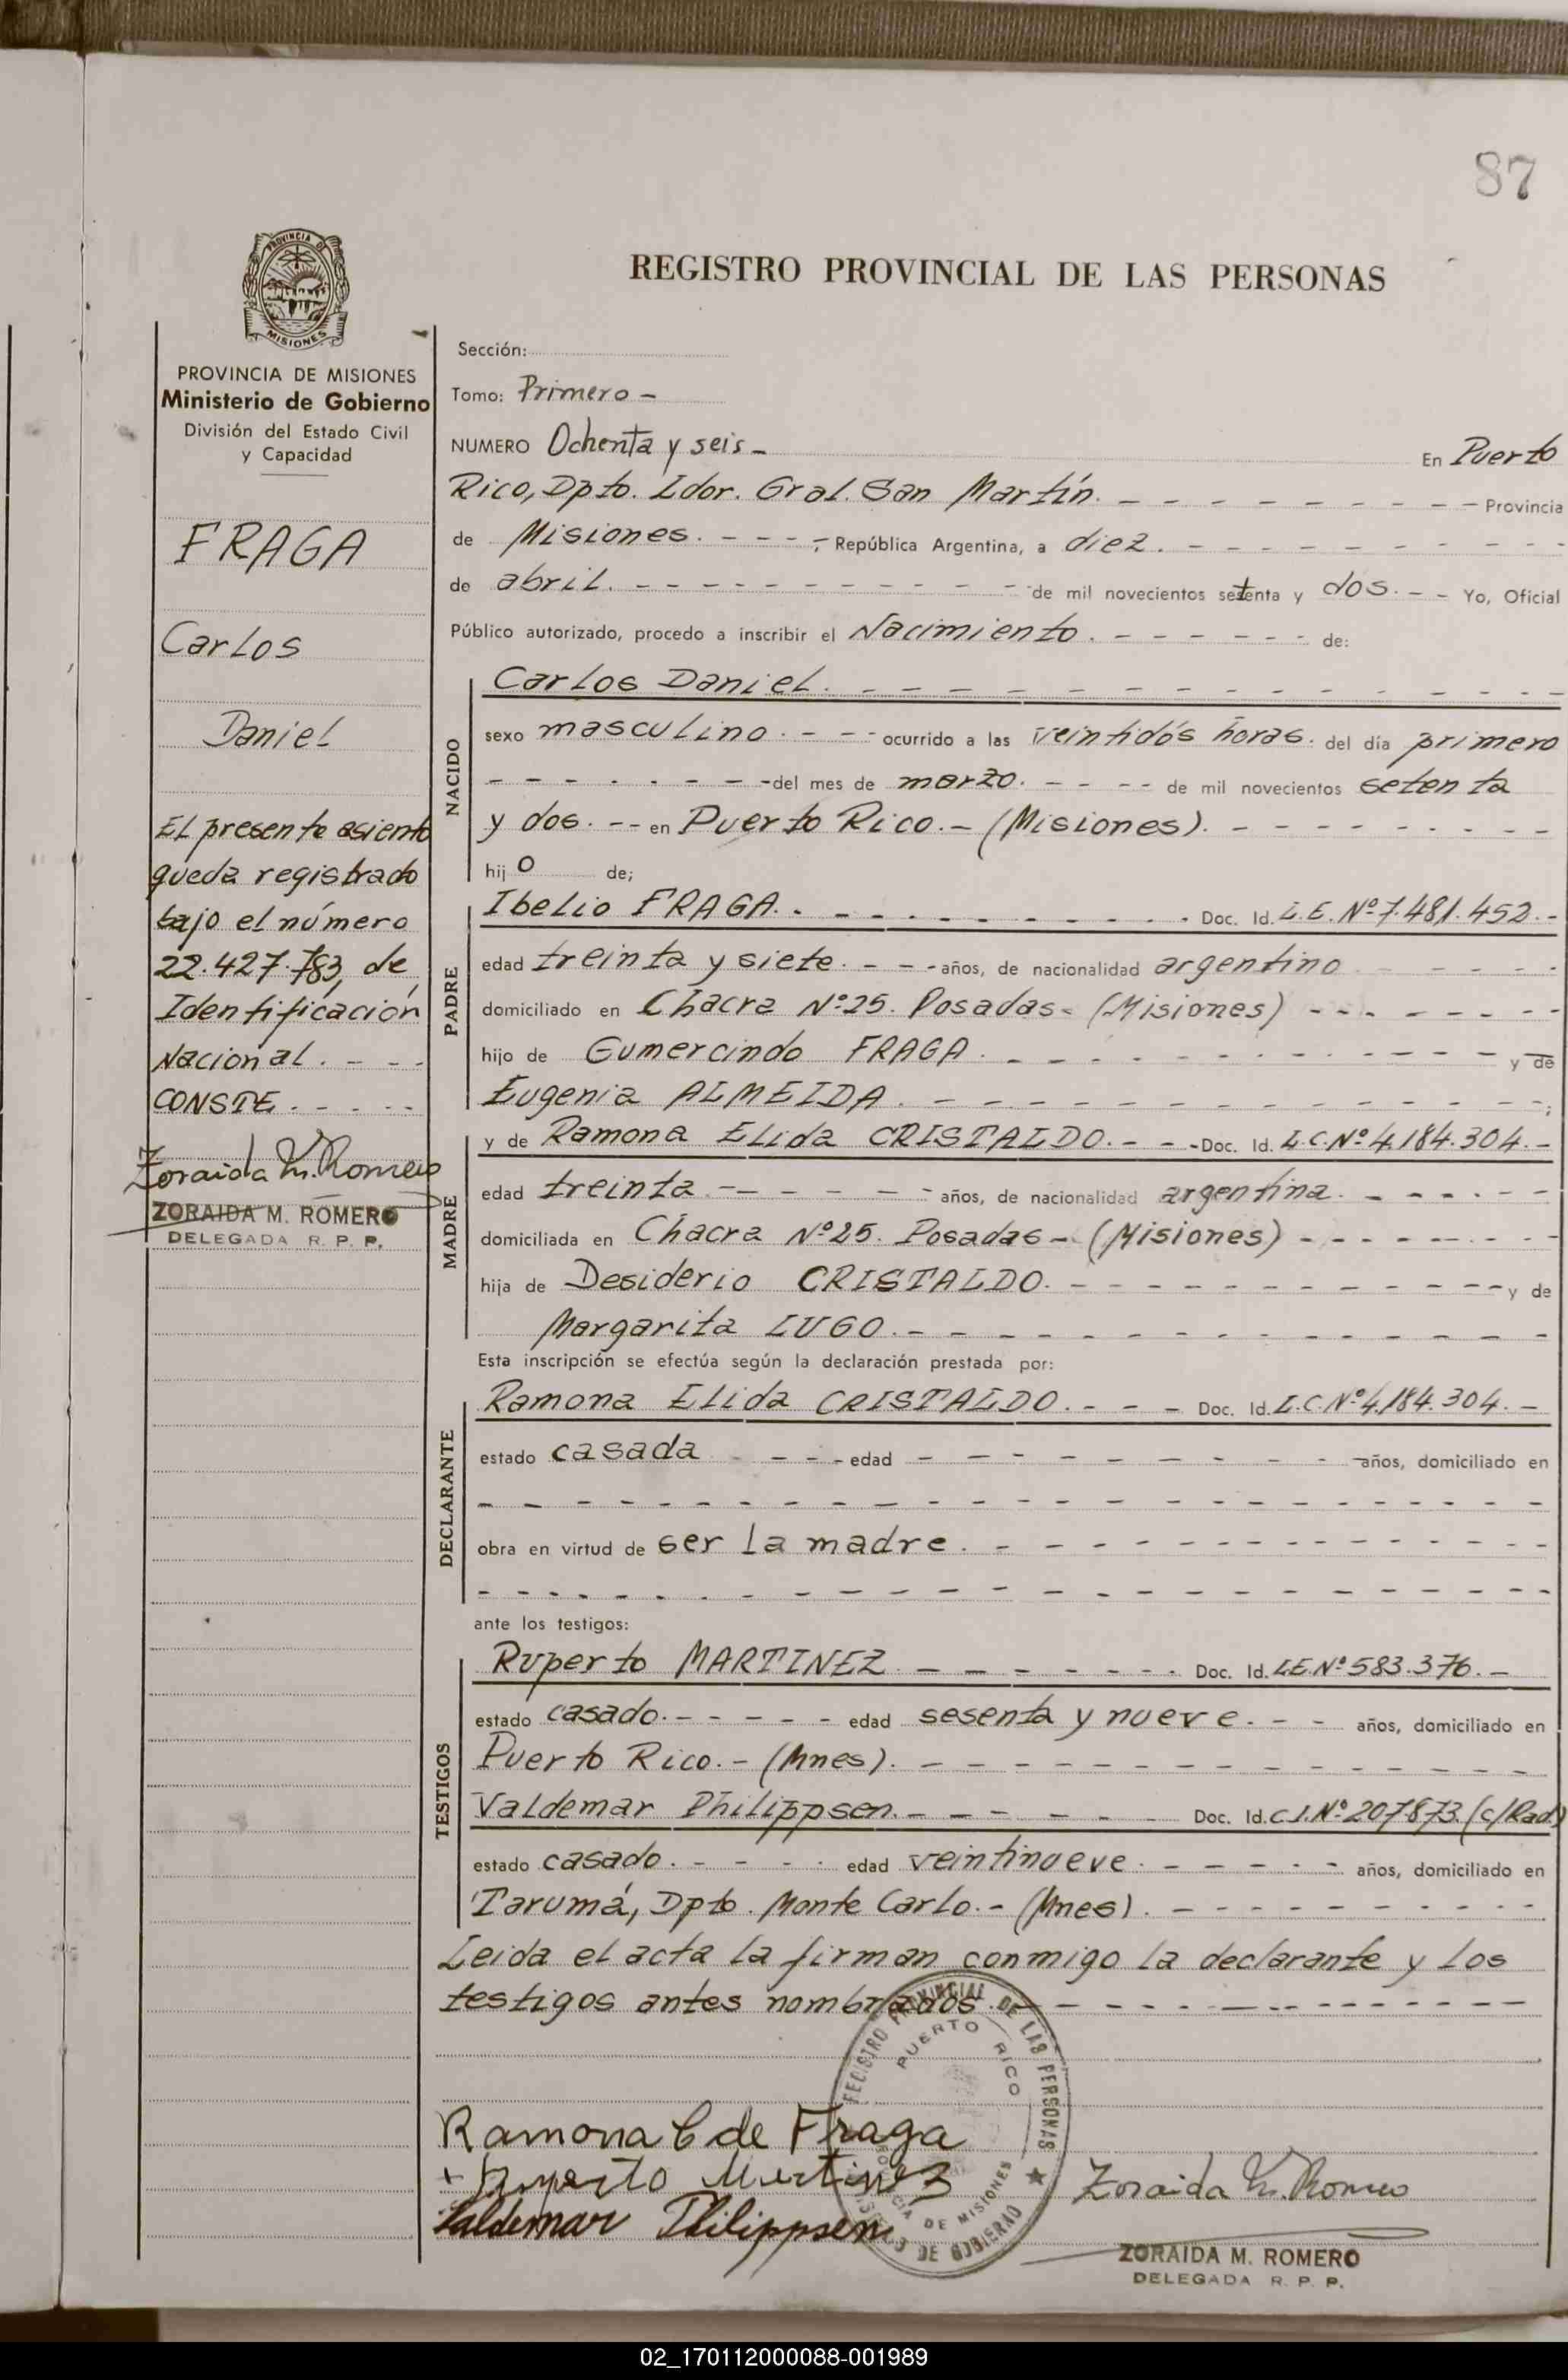 87
PROVINCIA DE
MISIONES
REGISTRO PROVINCIAL DE LAS PERSONAS
PROVINCIA DE MISIONES
Ministerio de Gobierno
División del Estado Civil
y Capacidad
FRAGA
Carlos
Daniel
El presente asiento
queda registrado
bajo el número
22.427.783, de
Identificación
Nacional. - - -
CONSTE. - - - -
Zoraida M. Romero
ZORAIDA M. ROMERO
DELEGADA R. P. P.
Sección:
Tomo: Primero -
NUMERO Ochenta y seis - En Puerto
Rico, Dpto. Ldor. Gral. San Martín. - - - Provincia
de Misiones. - - - ; República Argentina, a diez. - - -
de abril. - - - de mil novecientos setenta y dos. - - Yo, Oficial
Público autorizado, procedo a inscribir el Nacimiento. - - - de:
NACIDO
Carlos Daniel. - - -
sexo masculino. - - - ocurrido a las veintidós horas. del día primero
- - - del mes de marzo. - - - de mil novecientos setenta
y dos. - - en Puerto Rico. - (Misiones). - - -
hijo de;
PADRE
Ibelio FRAGA. - - - Doc. Id. L.E. Nº 7.481.452. -
edad treinta y siete. - - - años, de nacionalidad argentino - - -
domiciliado en Chacra Nº 25. Posadas - (Misiones) - - -
hijo de Gumercindo FRAGA. - - - y de
Eugenia ALMEIDA. - - - ;
MADRE
y de Ramona Elida CRISTALDO. - - - Doc. Id. L.C. Nº 4.184.304. -
edad treinta. - - - años, de nacionalidad argentina. - - -
domiciliada en Chacra Nº 25. Posadas - (Misiones) - - -
hija de Desiderio CRISTALDO. - - - y de
Margarita LUGO. - - -
Esta inscripción se efectúa según la declaración prestada por:
DECLARANTE
Ramona Elida CRISTALDO. - - - Doc. Id. L.C. Nº 4.184.304. -
estado casada - - - edad - - - años, domiciliado en
- - -
obra en virtud de ser la madre. - - -
- - -
ante los testigos:
TESTIGOS
Ruperto MARTINEZ - - - Doc. Id. L.E. Nº 583.376. -
estado casado. - - - edad sesenta y nueve. - - años, domiciliado en
Puerto Rico. - (Mnes). - - -
Valdemar Philippsen. - - - Doc. Id. C.I. Nº 207.873. (c/Rad.)
estado casado. - - - edad veintinueve. - - - años, domiciliado en
Tarumá, Dpto. Monte Carlo. - (Mnes). - - -
Leida el acta la firman conmigo la declarante y los
testigos antes nombrados. - - -
REGISTRO PROVINCIAL DE LAS PERSONAS
PUERTO RICO
PROVINCIA DE MISIONES
MINISTERIO DE GOBIERNO
Ramona C de Fraga
+ Ruperto Martinez
Valdemar Philippsen
Zoraida M. Romero
ZORAIDA M. ROMERO
DELEGADA R. P. P.
02_170112000088-001989